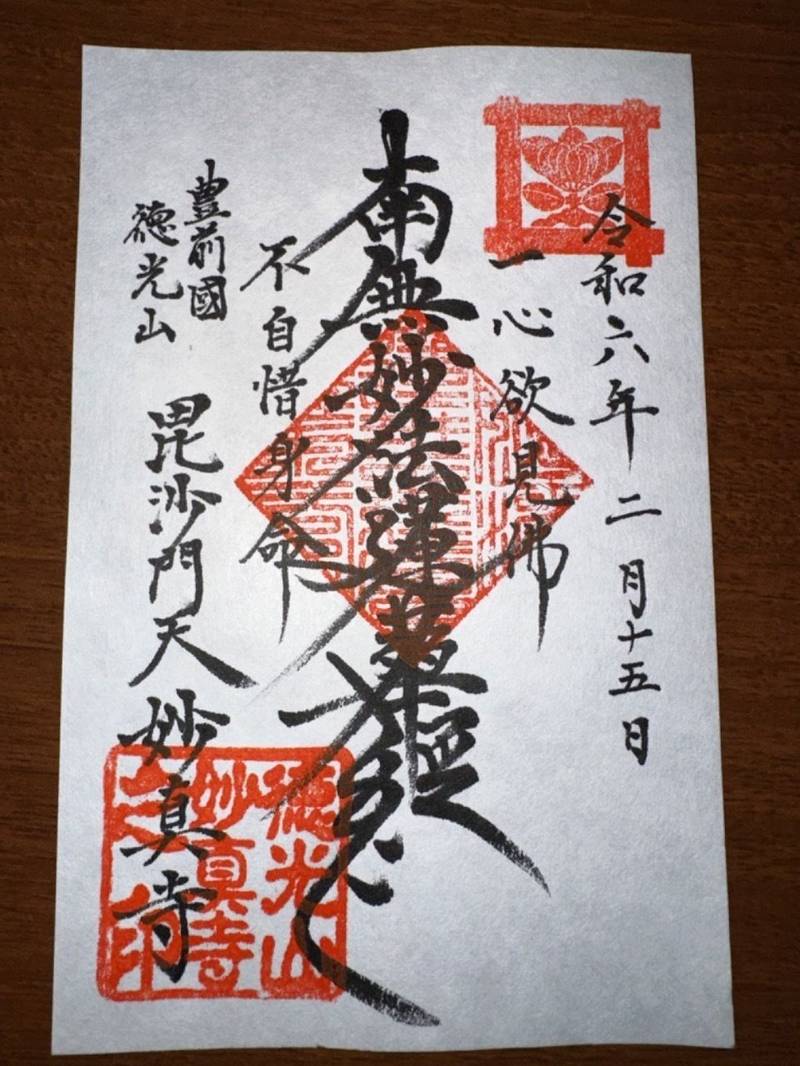 令和六年二月十五日
一心欲見佛
南無妙法蓮華經
不自惜身命
豊前國
德光山
毘沙門天 妙真寺
德光山
妙真寺
之印